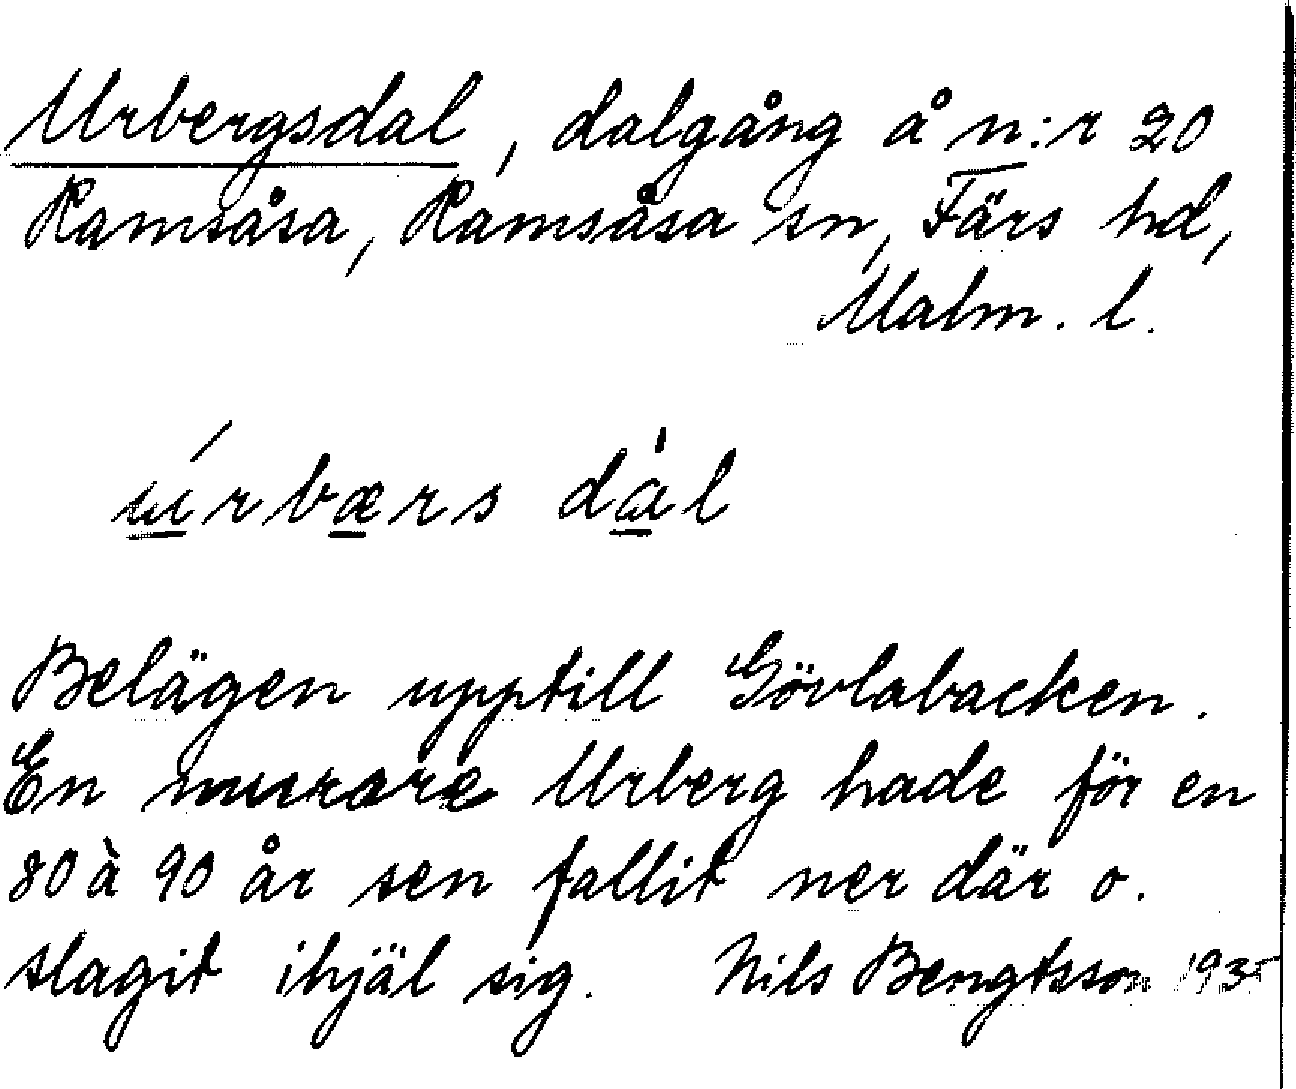 Urbergsdal, dalgång å n:r 20
Ramsåsa, Ramsåsa sn, Färs hd,
Malm. l.
úrbærs dål
Belägen upptill Gövlabacken.
En murare Urberg hade för en
80 à 90 år sen fallit ner där o.
slagit ihjäl sig. Nils Bengtsson 1935